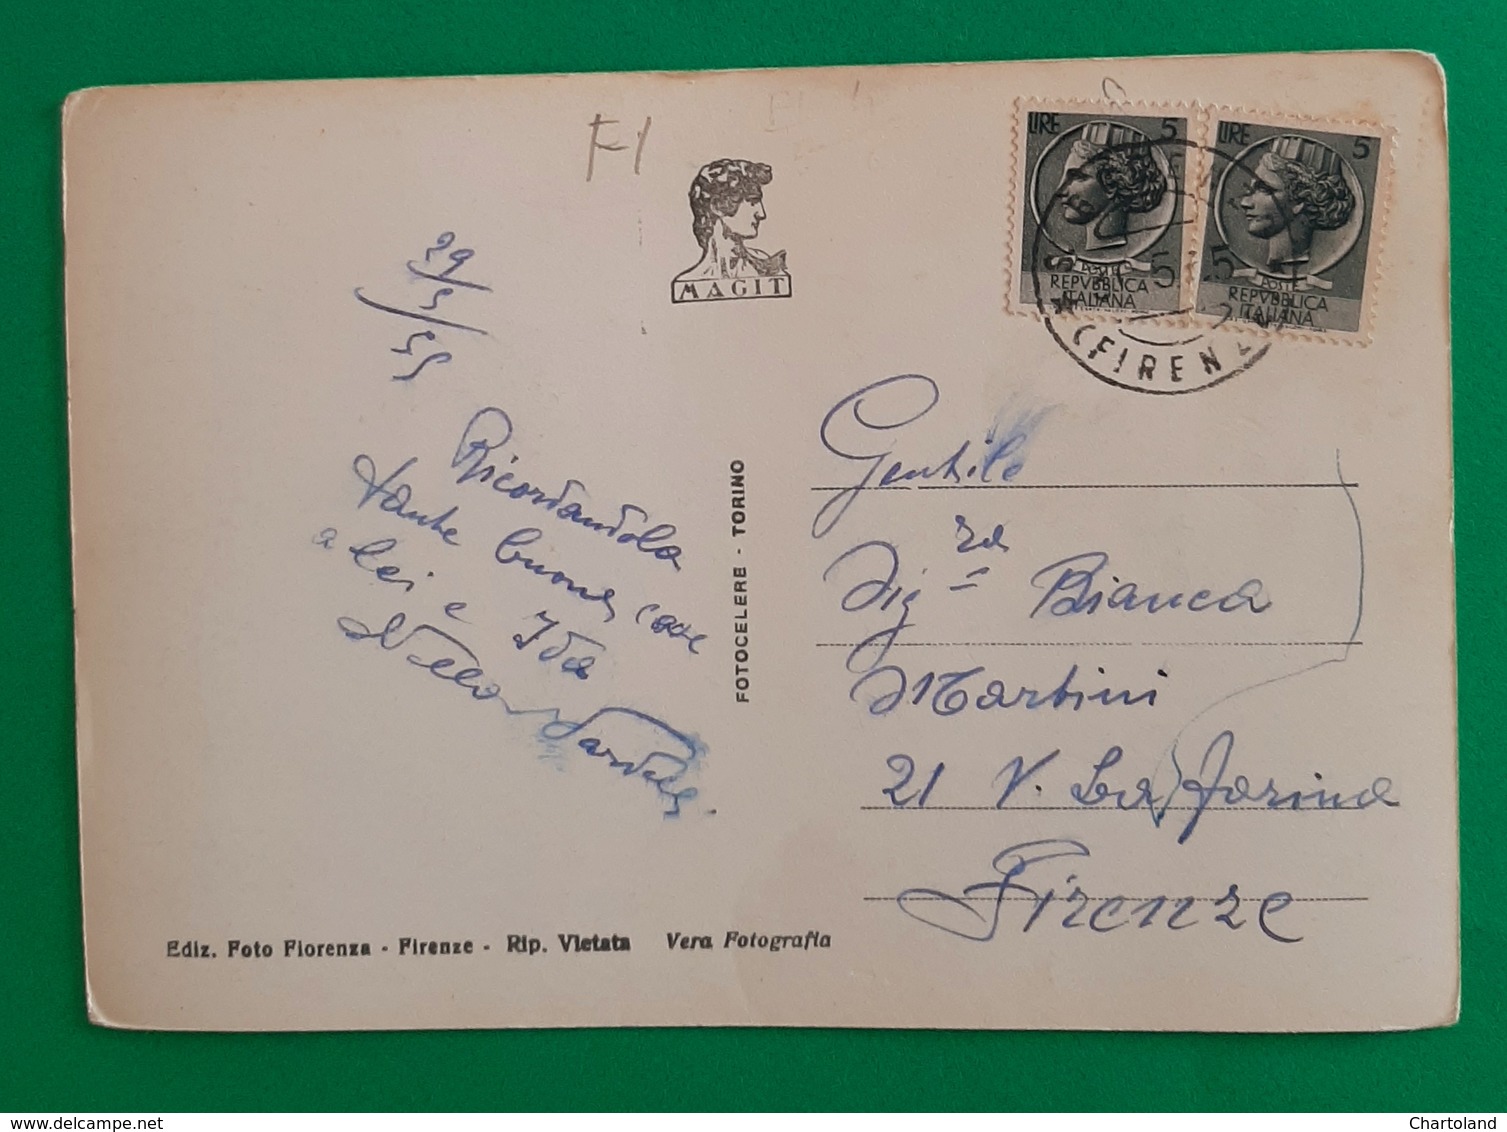 FI
MAGIT
LIRE 5
5
POSTE
REPVBBLICA
ITALIANA
LIRE 5
5
POSTE
REPVBBLICA
ITALIANA
(FIRENZ
29/5/55
Ricordandola
tante buone cose
a lei e Ida
Nella
FOTOCELERE - TORINO
Gentile
Sig.ra Bianca
Martini
21 V. La Farina
Firenze
Ediz. Foto Fiorenza - Firenze - Rip. Vietata Vera Fotografia
http://www.delcampe.net
Chartoland